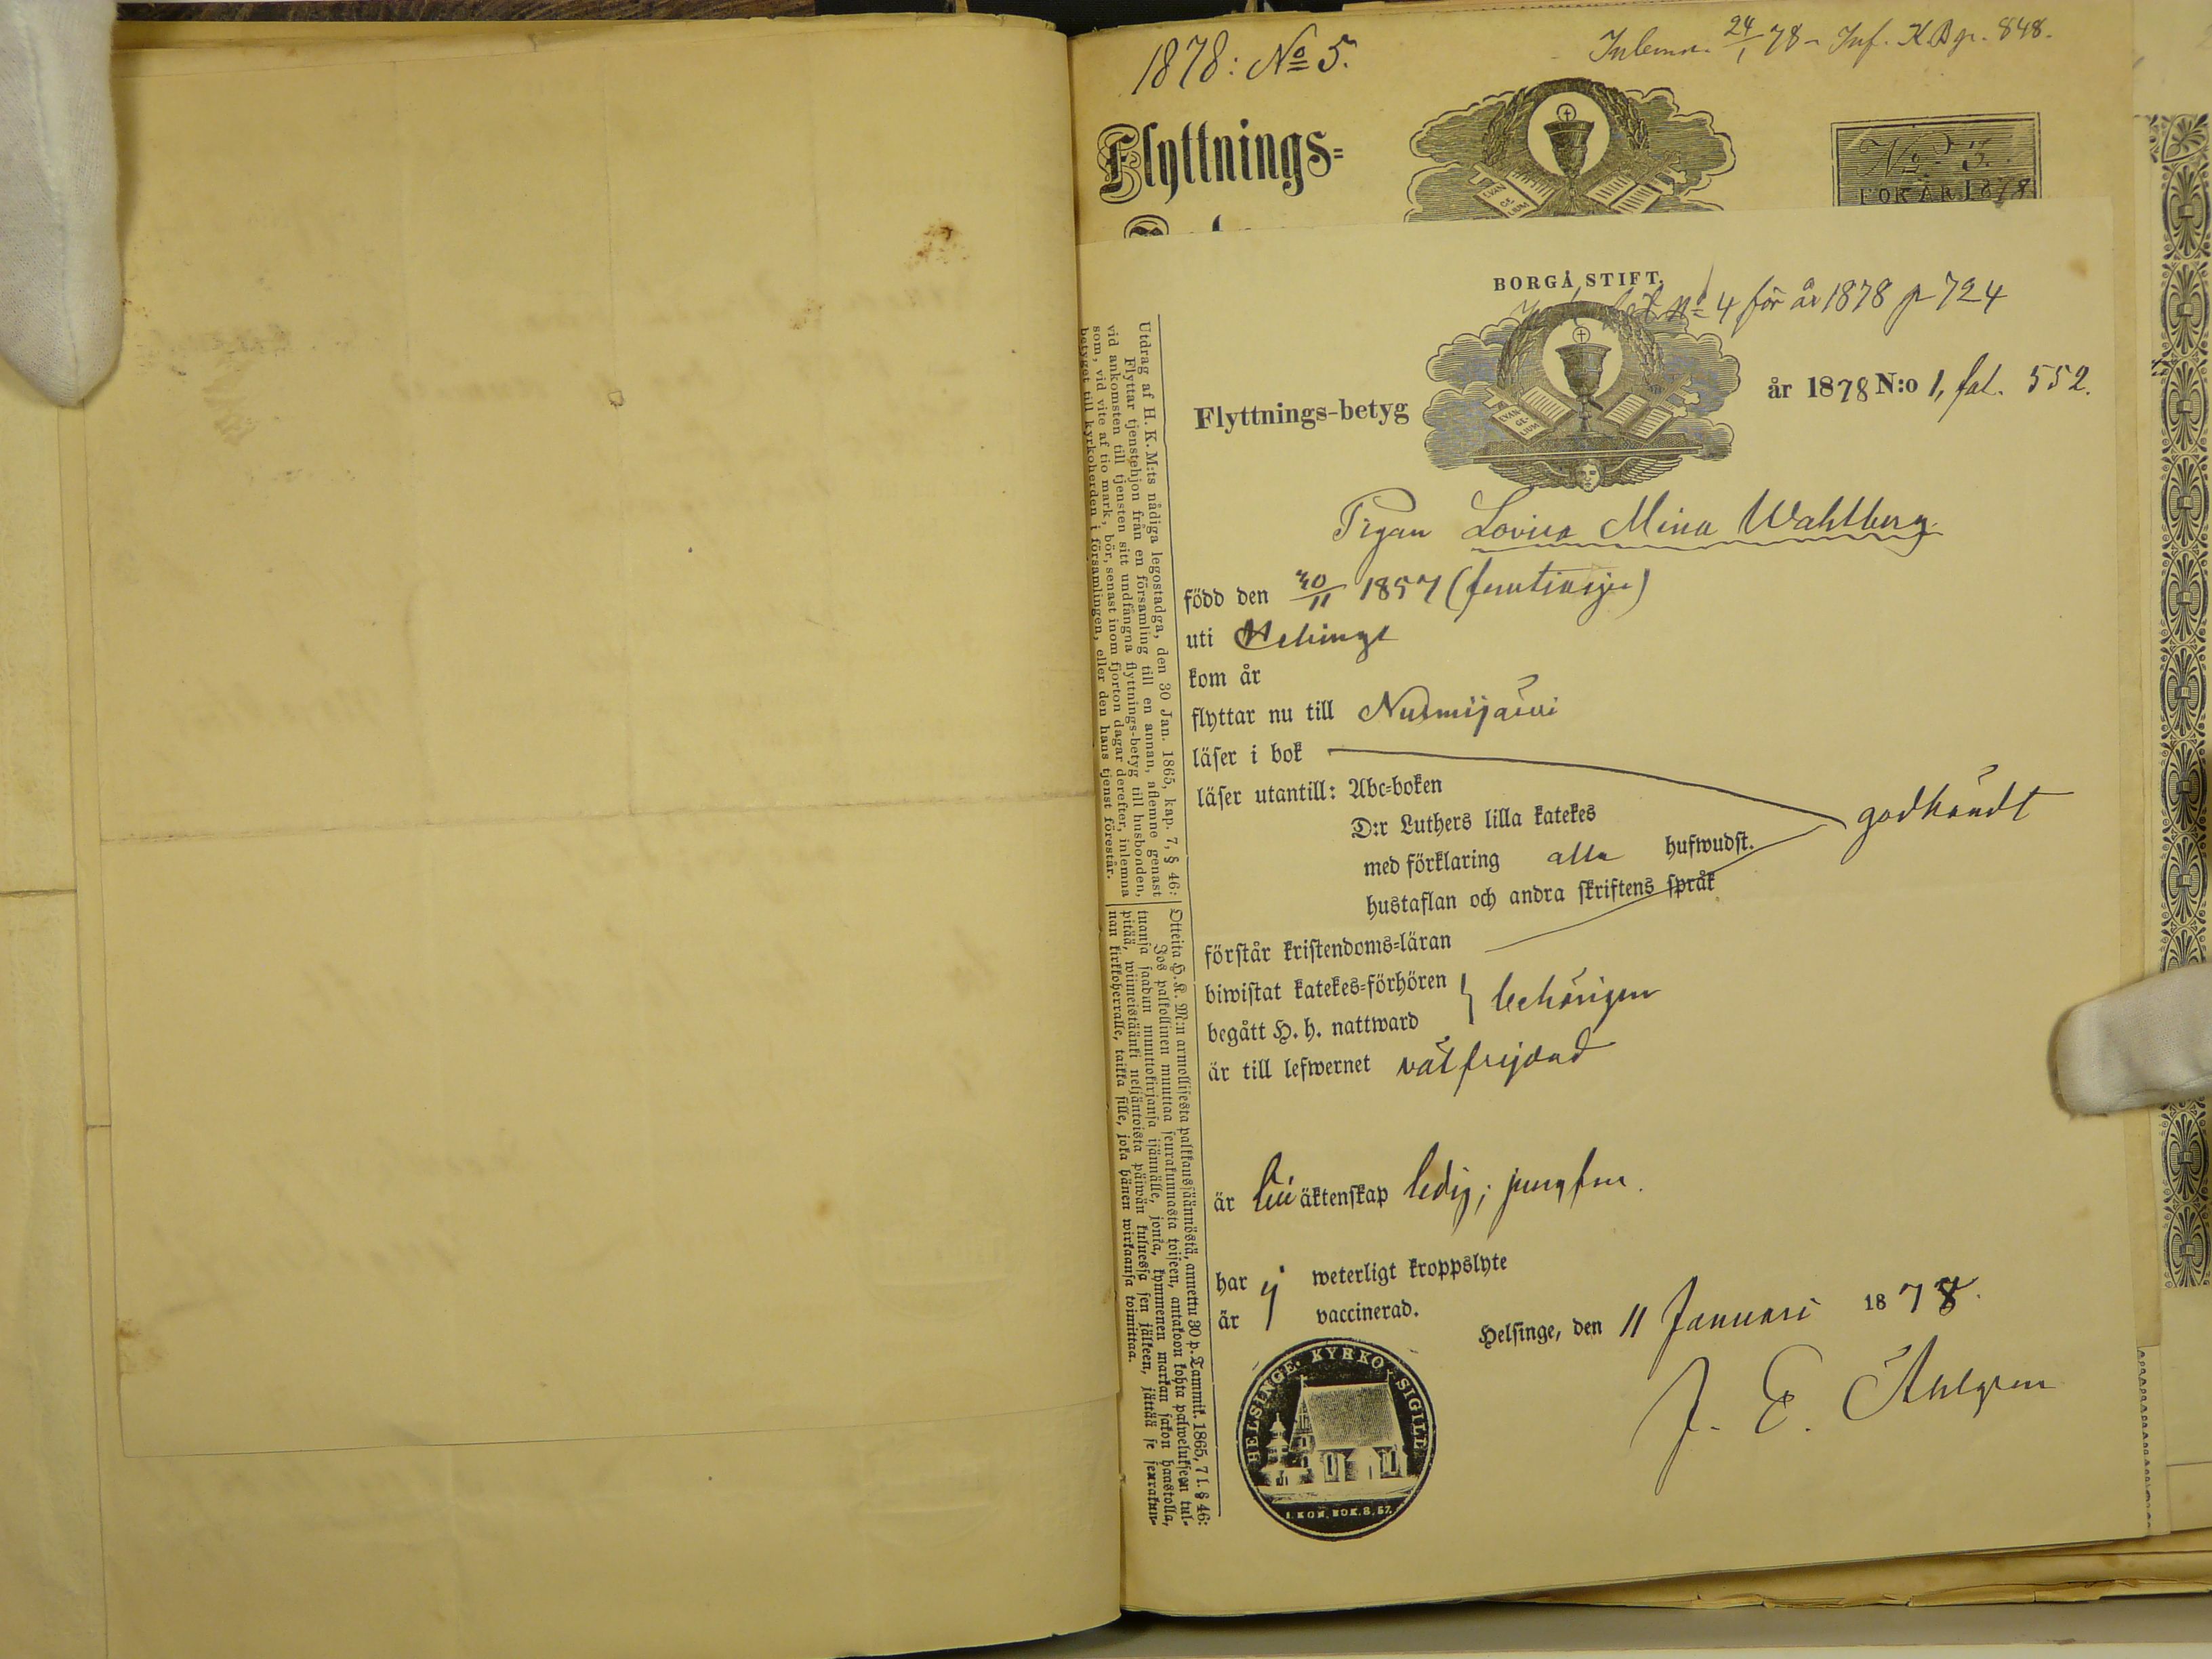 1878: No 5.
Inlemn. 24/1 78 - Inf. K.B. p. 848.
Flyttnings=
EVAN
GE
LIUM
No 5.
FÖR ÅR 1878
BORGÅ STIFT.
No 4 för år 1878 p 724
Flyttnings-betyg
EVAN
GE
LIUM
år 1878 N:o 1, fol. 552.
Pigan Lovisa Mina Wahlberg
född den 30/11 1857 (femtiosju)
uti Helsinge
kom år
flyttar nu till Nurmijärvi
läser i bok
läser utantill: Abc=boken
D:r Luthers lilla katekes
med förklaring alla hufwudst.
hustaflan och andra skriftens språk
godkändt
förstår kristendoms=läran
biwistat katekes=förhören
begått H. h. nattward
behörigen
är till lefwernet välfrejdad
är till äktenskap ledig; jungfru.
har ej weterligt kroppslyte
är vaccinerad.
Helsinge, den 11 Januari 1878.
J. E. Åhlgren
HELSINGE. KYRKO. SIGILL
1. KON. BOK. 8, 57.
Utdrag af H. K. M:ts nådiga legostadga, den 30 Jan. 1865, kap. 7, § 46:
Flyttar tjenstehjon från en församling till en annan, aflemne genast
vid ankomsten till tjensten sitt undfångna flyttnings-betyg till husbonden,
som, vid vite af tio mark, bör, senast inom fjorton dagar derefter, inlemna
betyget till kyrkoherden i församlingen, eller den hans tjenst förestår.
Otteita H. K. M:n armollisesta palkkaussäännöstä, annettu 30 p. Tammik. 1865, 7 l. § 46:
Jos palkollinen muuttaa seurakunnasta toiseen, antakoon kohta palwelukseen tul-
tuansa saadun muuttokirjansa isännälle, jonka, kymmenen markan sakon haastolla,
pitää, wiimeistäänki neljäntoista päiwän kuluessa sen jälkeen, jättää se seurakun-
nan kirkkoherralle, taikka sille, joka hänen wirkaansa toimittaa.